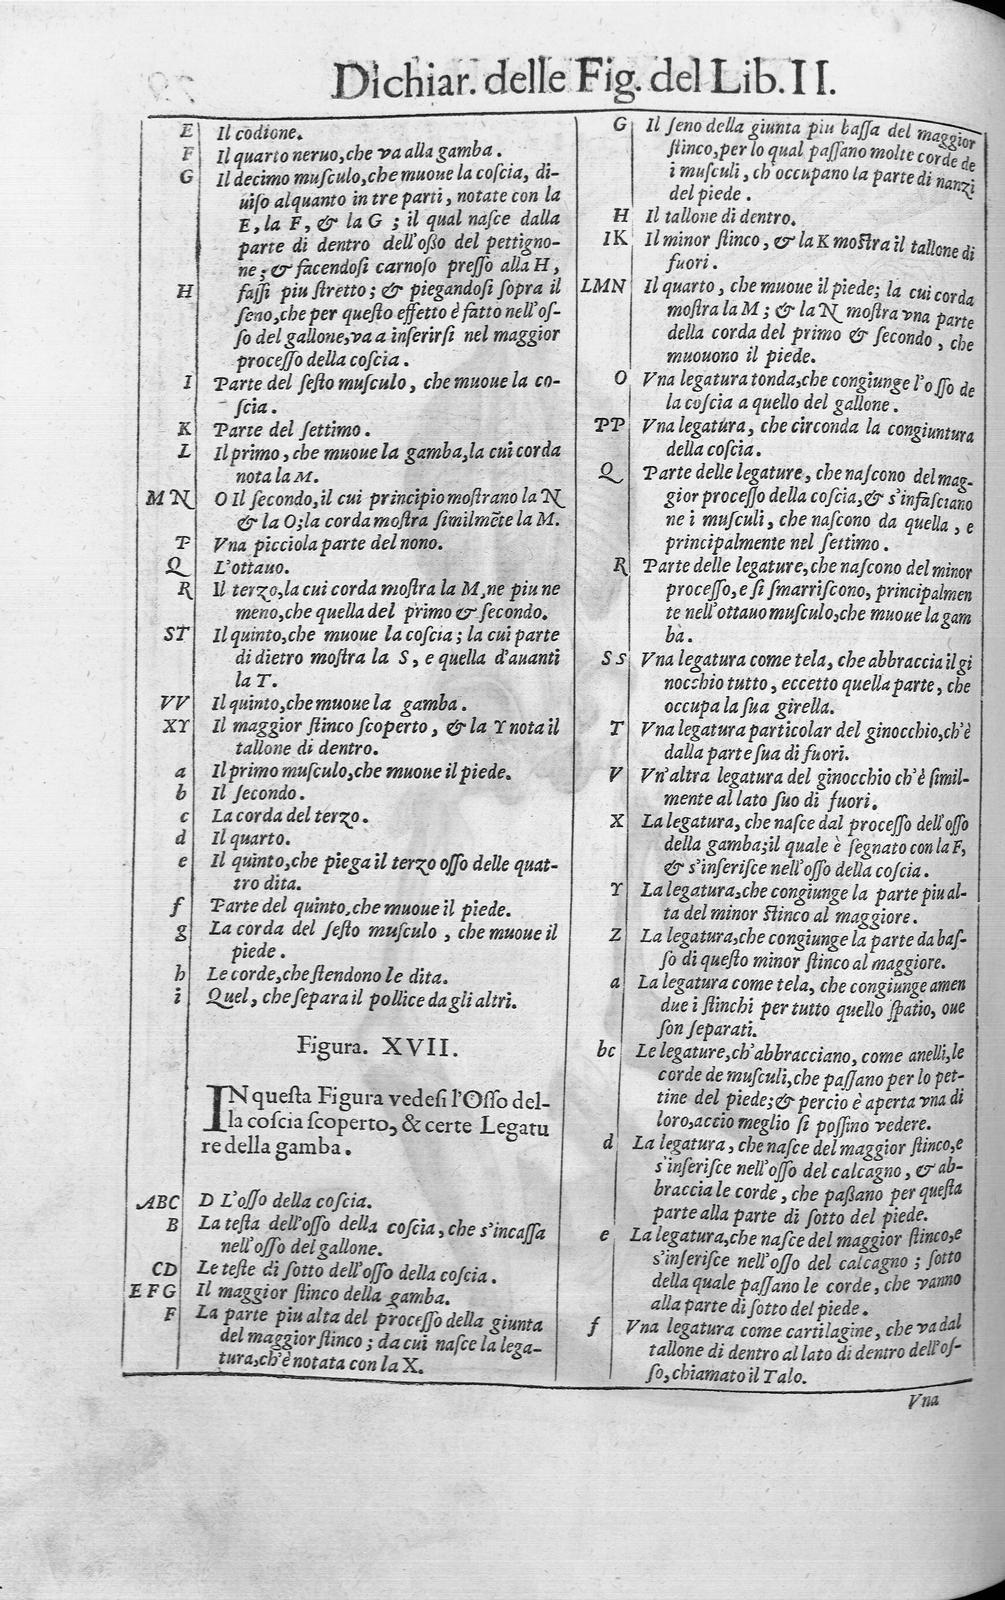 Dichiar. delle Fig. del Lib. II.
E Il codione.
F Il quarto neruo, che va alla gamba.
G Il decimo muſculo, che muoue la coſcia, di-
uiſo alquanto in tre parti, notate con la
E, la F, & la G; il qual naſce dalla
parte di dentro dell'oßo del pettigno-
ne; & facendoſi carnoſo preſſo alla H,
H faſſi piu ſtretto; & piegandoſi ſopra il
ſeno, che per queſto effetto è fatto nell'oſ-
ſo del gallone, va a inſerirſi nel maggior
proceſſo della coſcia.
I Parte del ſeſto muſculo, che muoue la co-
ſcia.
K Parte del ſettimo.
L Il primo, che muoue la gamba, la cui corda
nota la M.
M N O Il ſecondo, il cui principio moſtrano la N
& la O; la corda moſtra ſimilmẽte la M.
P Vna picciola parte del nono.
Q L'ottauo.
R Il terzo, la cui corda moſtra la M, ne piu ne
meno, che quella del primo & ſecondo.
ST Il quinto, che muoue la coſcia; la cui parte
di dietro moſtra la S, e quella d'auanti
la T.
VV Il quinto, che muoue la gamba.
XY Il maggior ſtinco ſcoperto, & la Y nota il
tallone di dentro.
a Il primo muſculo, che muoue il piede.
b Il ſecondo.
c La corda del terzo.
d Il quarto.
e Il quinto, che piega il terzo oſſo delle quat-
tro dita.
f Parte del quinto, che muoue il piede.
g La corda del ſeſto muſculo, che muoue il
piede.
h Le corde, che ſtendono le dita.
i Quel, che ſepara il pollice da gli altri.
Figura. XVII.
IN queſta Figura vedeſi l'Oſſo del-
la coſcia ſcoperto, & certe Legatu
re della gamba.
ABC D L'oſſo della coſcia.
B La teſta dell'oſſo della coſcia, che s'incaſſa
nell'oſſo del gallone.
CD Le teſte di ſotto dell'oſſo della coſcia.
E F G Il maggior ſtinco della gamba.
F La parte piu alta del proceſſo della giunta
del maggior ſtinco; da cui naſce la lega-
tura, ch'è notata con la X.
G Il ſeno della giunta piu baſſa del maggior
ſtinco, per lo qual paſſano molte corde de
i muſculi, ch'occupano la parte di nanzi
del piede.
H Il tallone di dentro.
IK Il minor ſtinco, & la K moſtra il tallone di
fuori.
LMN Il quarto, che muoue il piede; la cui corda
moſtra la M; & la N moſtra vna parte
della corda del primo & ſecondo, che
muouono il piede.
O Vna legatura tonda, che congiunge l'oſſo de
la coſcia a quello del gallone.
PP Vna legatura, che circonda la congiuntura
della coſcia.
Q Parte delle legature, che naſcono del mag-
gior proceſſo della coſcia, & s'infaſciano
ne i muſculi, che naſcono da quella, e
principalmente nel ſettimo.
R Parte delle legature, che naſcono del minor
proceſſo, e ſi ſmarriſcono, principalmen
te nell'ottauo muſculo, che muoue la gam
ba.
S s Vna legatura come tela, che abbraccia il gi
nocchio tutto, eccetto quella parte, che
occupa la ſua girella.
T Vna legatura particolar del ginocchio, ch'è
dalla parte ſua di fuori.
V Vn'altra legatura del ginocchio ch'è ſimil-
mente al lato ſuo di fuori.
X La legatura, che naſce dal proceſſo dell'oſſo
della gamba; il quale è ſegnato con la F,
& s'inſeriſce nell'oſſo della coſcia.
Y La legatura, che congiunge la parte piu al-
ta del minor ſtinco al maggiore.
Z La legatura, che congiunge la parte da baſ-
ſo di queſto minor ſtinco al maggiore.
a La legatura come tela, che congiunge amen
due i ſtinchi per tutto quello ſpatio, oue
ſon ſeparati.
bc Le legature, ch'abbracciano, come anelli, le
corde de muſculi, che paſſano per lo pet-
tine del piede; & percio è aperta vna di
loro, accio meglio ſi poſſino vedere.
d La legatura, che naſce del maggior ſtinco, e
s'inſeriſce nell'oſſo del calcagno, & ab-
braccia le corde, che paßano per queſta
parte alla parte di ſotto del piede.
e La legatura, che naſce del maggior ſtinco, e
s'inſeriſce nell'oſſo del calcagno; ſotto
della quale paſſano le corde, che vanno
alla parte di ſotto del piede.
f Vna legatura come cartilagine, che va dal
tallone di dentro al lato di dentro dell'oſ-
ſo, chiamato il Talo.
Vna